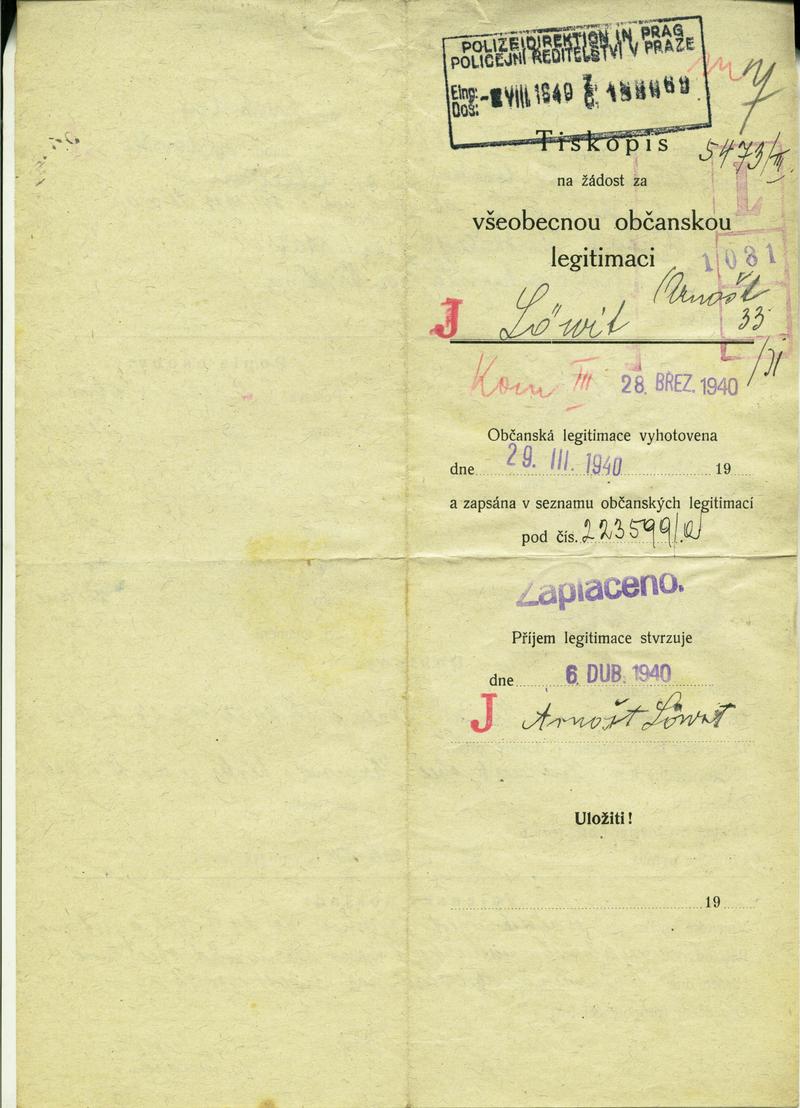 POLIZEIDIREKTION IN PRAG
POLICEJNÍ ŘEDITELSTVÍ V PRAZE
Eing:
Doš:
VIII. 1940
Tiskopis
5473/III.
na žádost za
L
všeobecnou občanskou
legitimaci
1081
Arnošt
J Löwit
33
/31
Kom III 28. BŘEZ. 1940
Občanská legitimace vyhotovena
dne 29. III. 1940 19
a zapsána v seznamu občanských legitimací
pod čís. 223599/
Zaplaceno.
Příjem legitimace stvrzuje
dne 6. DUB. 1940
J Arnošt Löwit
Uložiti!
19